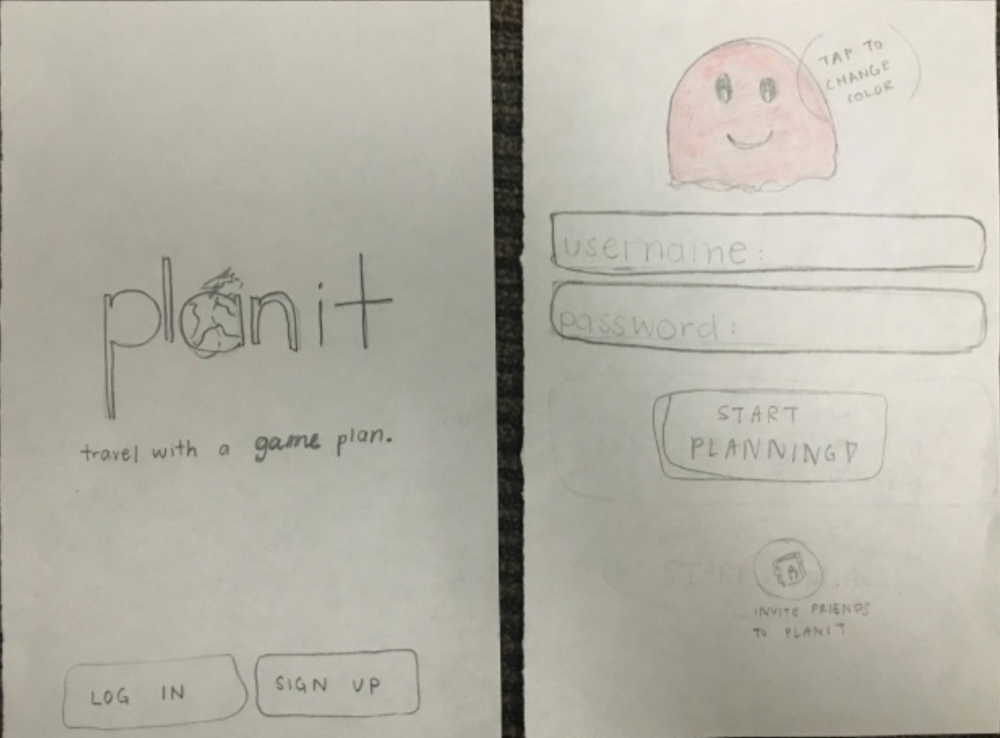 planit
travel with a game plan.
LOG IN
SIGN UP
TAP TO
CHANGE
COLOR
username:
password:
START
PLANNING
START
INVITE FRIENDS
TO PLANIT